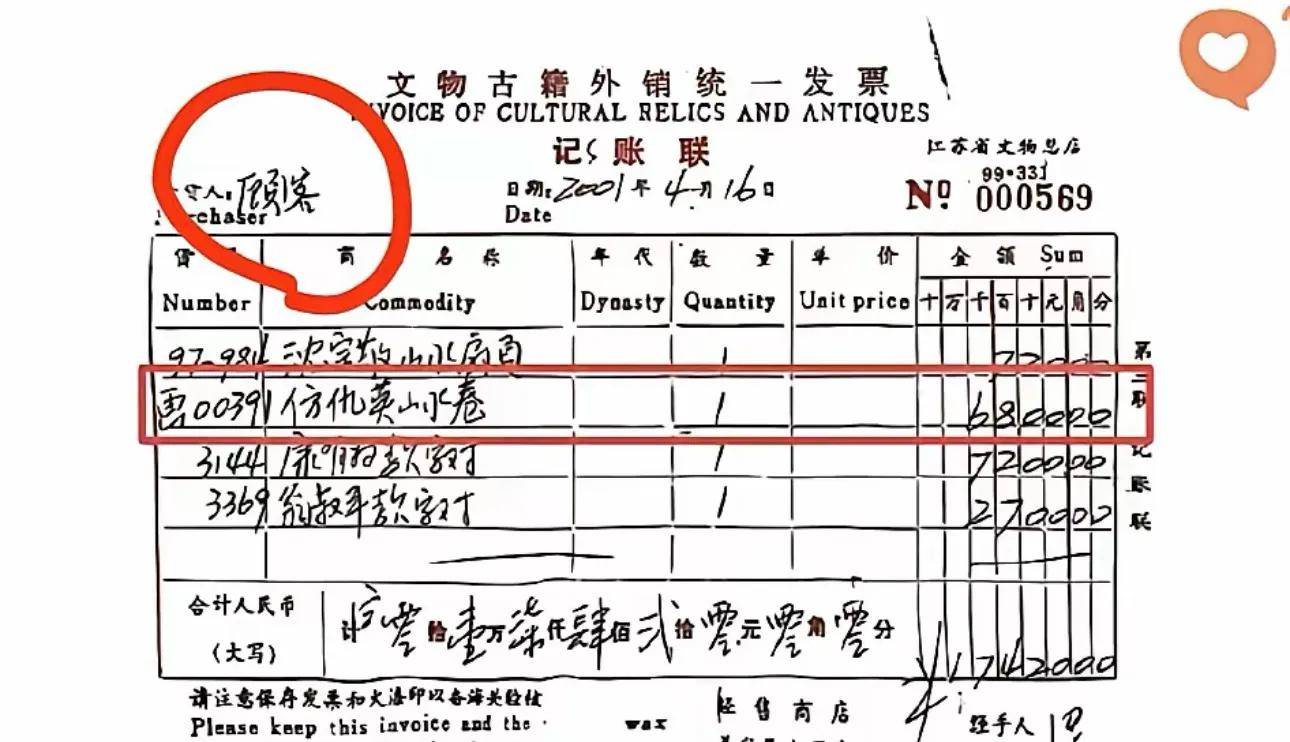 文物古籍外销统一发票
INVOICE OF CULTURAL RELICS AND ANTIQUES
记账联
江苏省文物总店
99·331
货人:顾客
Purchaser
日期:2001年4月16日
Date
№ 000569
商 名 称 年 代 数 量 单 价 金 额 Sum
Number Commodity Dynasty Quantity Unit price 十万千百十元角分
97-984 山水扇页 1 72000
00391 仿仇英山水卷 1 680000
3144 款字对 1 720000
3369 翁叔平款字对 1 270000
第二联 记账联
合计人民币
(大写)
计 零拾壹万柒仟肆佰贰拾零元零角零分
¥1742000
请注意保存发票和火漆印以备海关验核
Please keep this invoice and the wax
经售商店
经手人